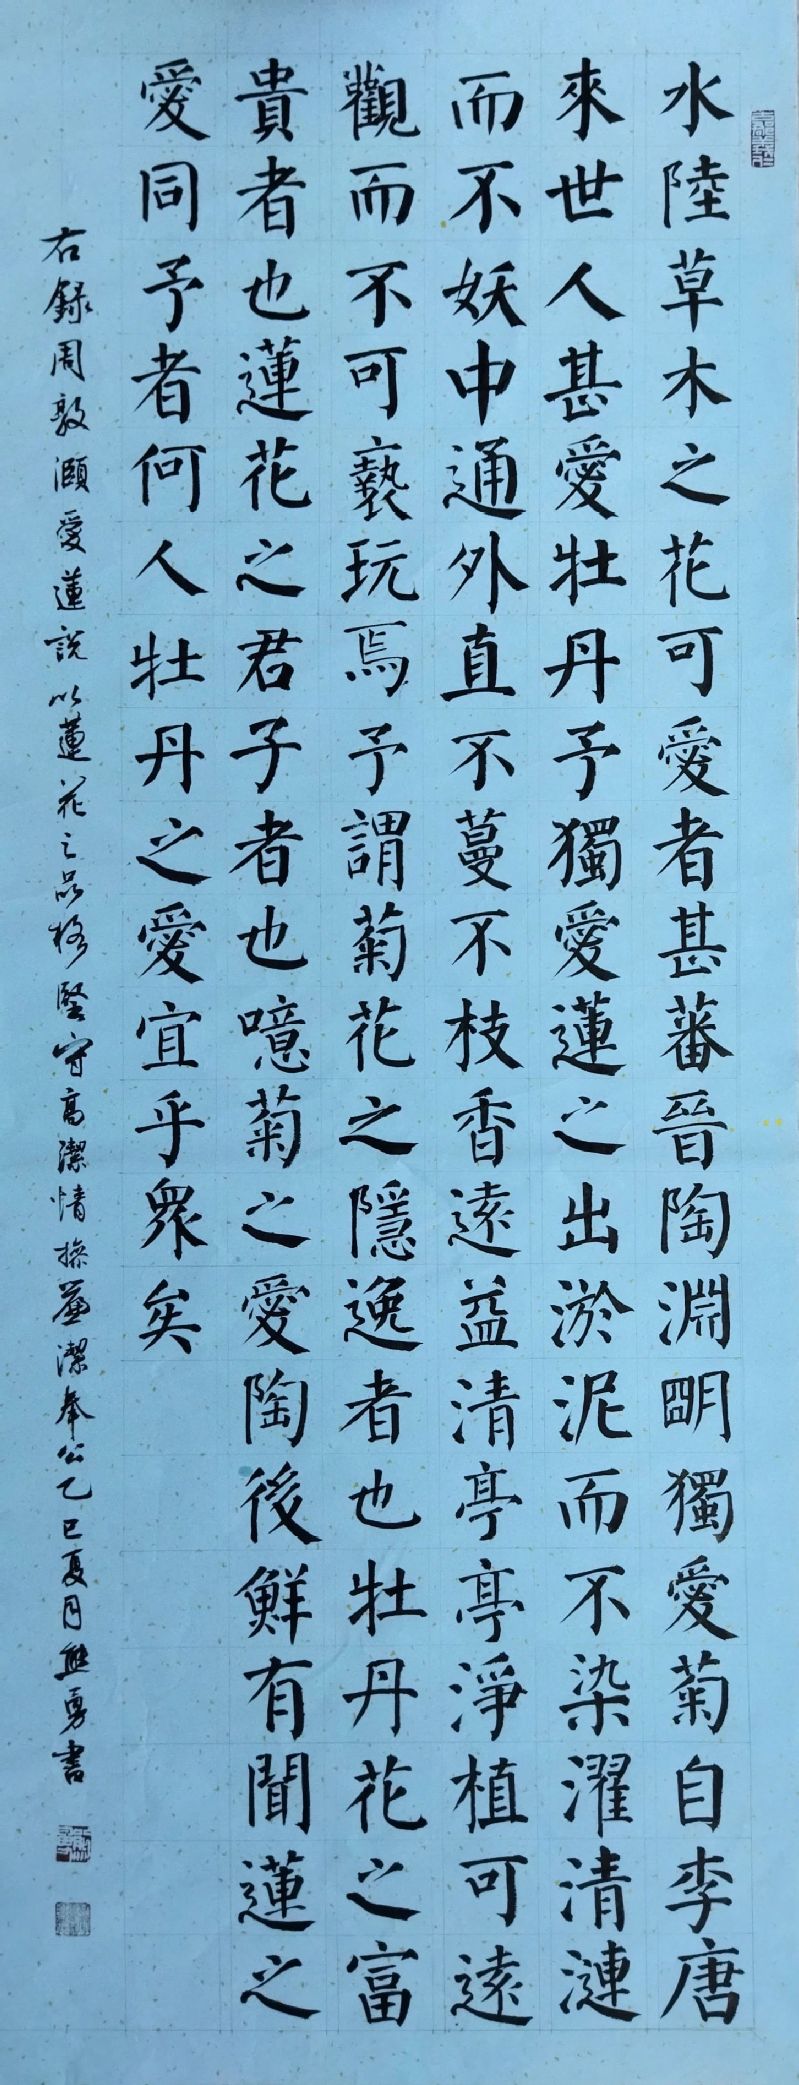 水陸草木之花可愛者甚蕃晉陶淵明獨愛菊自李唐
來世人甚愛牡丹予獨愛蓮之出淤泥而不染濯清漣
而不妖中通外直不蔓不枝香遠益清亭亭淨植可遠
觀而不可褻玩焉予謂菊花之隱逸者也牡丹花之富
貴者也蓮花之君子者也噫菊之愛陶後鮮有聞蓮之
愛同予者何人牡丹之愛宜乎眾矣
右錄周敦灝愛蓮說以蓮花之品格堅守高潔情操廉潔奉公乙巳夏月熊勇書